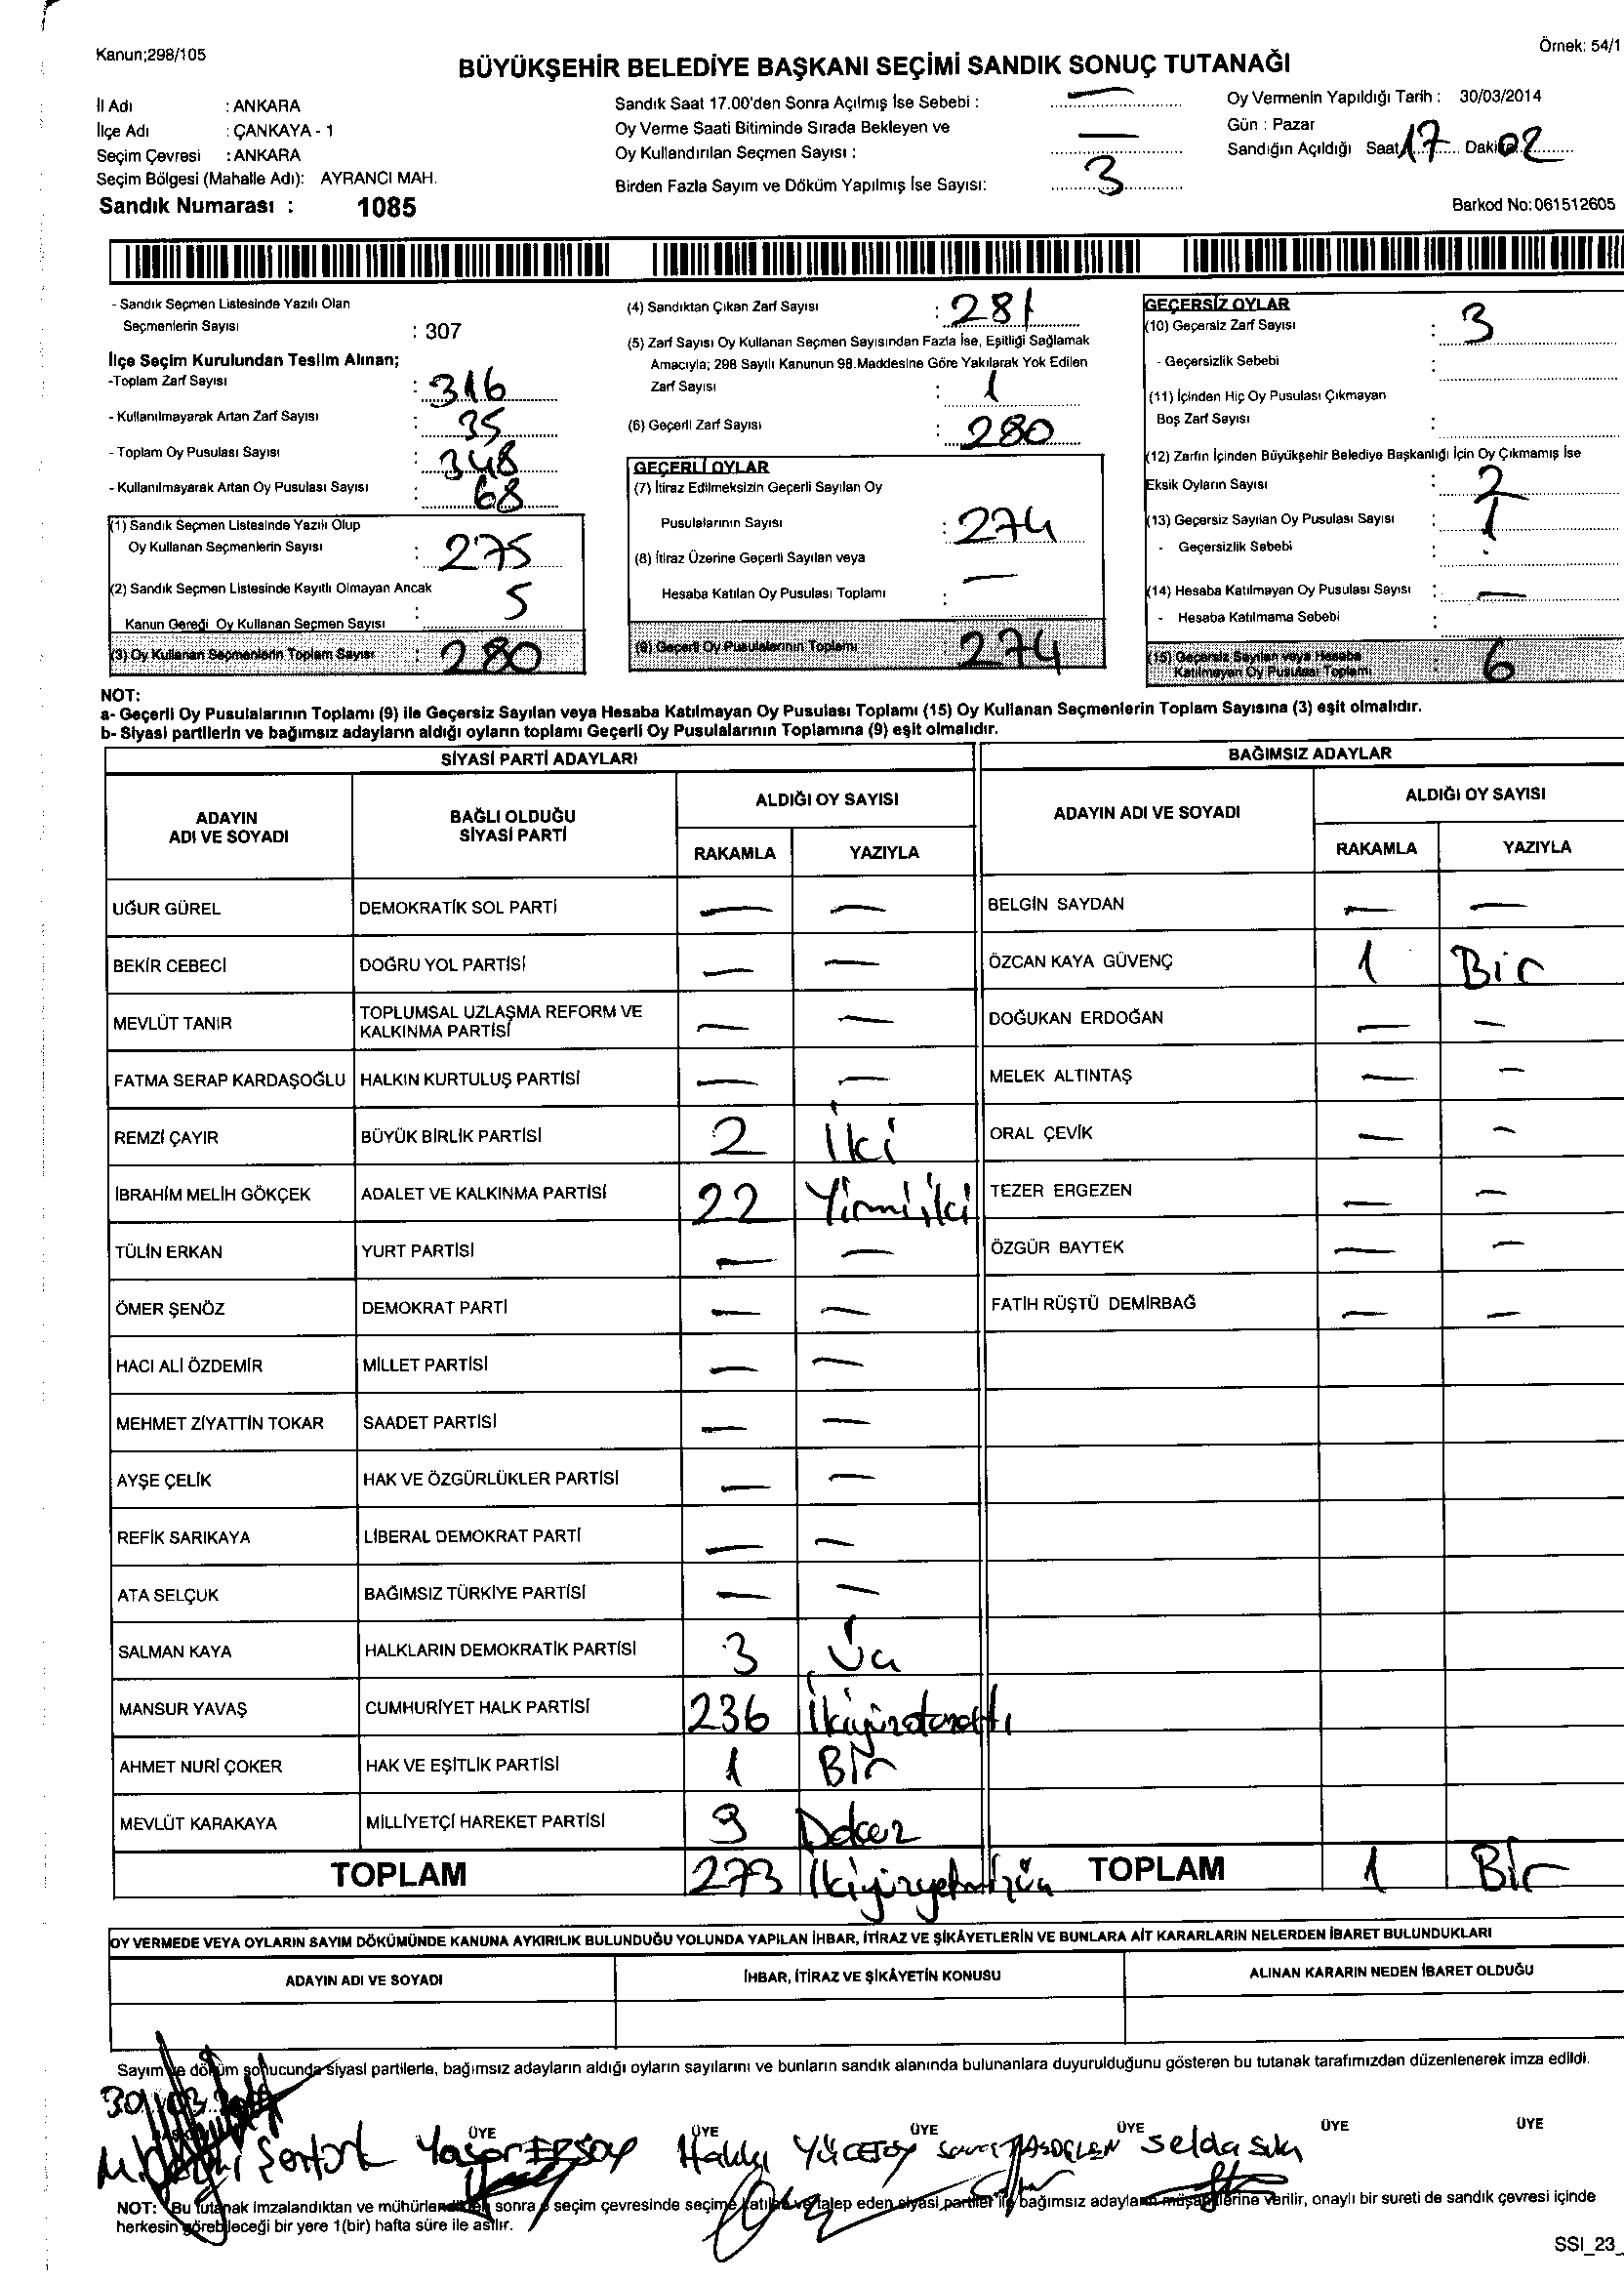 Kanun;298/105
Örnek: 54/1
BÜYÜKŞEHİR BELEDİYE BAŞKANI SEÇİMİ SANDIK SONUÇ TUTANAĞI
İl Adı : ANKARA
İlçe Adı : ÇANKAYA - 1
Seçim Çevresi : ANKARA
Seçim Bölgesi (Mahalle Adı): AYRANCI MAH.
Sandık Numarası : 1085
Sandık Saat 17.00'den Sonra Açılmış İse Sebebi : —
Oy Verme Saati Bitiminde Sırada Bekleyen ve
Oy Kullandırılan Seçmen Sayısı : —
Birden Fazla Sayım ve Döküm Yapılmış İse Sayısı: 3
Oy Vermenin Yapıldığı Tarih : 30/03/2014
Gün : Pazar
Sandığın Açıldığı Saat 17 Dakika 02
Barkod No:061512605
- Sandık Seçmen Listesinde Yazılı Olan
Seçmenlerin Sayısı : 307
İlçe Seçim Kurulundan Teslim Alınan;
-Toplam Zarf Sayısı : 316
- Kullanılmayarak Artan Zarf Sayısı : 35
- Toplam Oy Pusulası Sayısı : 348
- Kullanılmayarak Artan Oy Pusulası Sayısı : 68
(1) Sandık Seçmen Listesinde Yazılı Olup
Oy Kullanan Seçmenlerin Sayısı : 275
(2) Sandık Seçmen Listesinde Kayıtlı Olmayan Ancak
Kanun Gereği Oy Kullanan Seçmen Sayısı : 5
(3) Oy Kullanan Seçmenlerin Toplam Sayısı : 280
(4) Sandıktan Çıkan Zarf Sayısı : 281
(5) Zarf Sayısı Oy Kullanan Seçmen Sayısından Fazla İse, Eşitliği Sağlamak
Amacıyla; 298 Sayılı Kanunun 98.Maddesine Göre Yakılarak Yok Edilen
Zarf Sayısı : 1
(6) Geçerli Zarf Sayısı : 280
GEÇERLİ OYLAR
(7) İtiraz Edilmeksizin Geçerli Sayılan Oy
Pusulalarının Sayısı : 274
(8) İtiraz Üzerine Geçerli Sayılan veya
Hesaba Katılan Oy Pusulası Toplamı : —
(9) Geçerli Oy Pusulalarının Toplamı 274
GEÇERSİZ OYLAR
(10) Geçersiz Zarf Sayısı : 3
- Geçersizlik Sebebi :
(11) İçinden Hiç Oy Pusulası Çıkmayan
Boş Zarf Sayısı :
(12) Zarfın İçinden Büyükşehir Belediye Başkanlığı İçin Oy Çıkmamış İse
Eksik Oyların Sayısı : 2
(13) Geçersiz Sayılan Oy Pusulası Sayısı : 1
- Geçersizlik Sebebi :
(14) Hesaba Katılmayan Oy Pusulası Sayısı : —
- Hesaba Katılmama Sebebi :
(15) Geçersiz Sayılan veya Hesaba
Katılmayan Oy Pusulası Toplamı : 6
NOT:
a- Geçerli Oy Pusulalarının Toplamı (9) ile Geçersiz Sayılan veya Hesaba Katılmayan Oy Pusulası Toplamı (15) Oy Kullanan Seçmenlerin Toplam Sayısına (3) eşit olmalıdır.
b- Siyasi partilerin ve bağımsız adayların aldığı oyların toplamı Geçerli Oy Pusulalarının Toplamına (9) eşit olmalıdır.
SİYASİ PARTİ ADAYLARI
ADAYIN ADI VE SOYADI BAĞLI OLDUĞU SİYASİ PARTİ ALDIĞI OY SAYISI
RAKAMLA YAZIYLA
UĞUR GÜREL DEMOKRATİK SOL PARTİ — —
BEKİR CEBECİ DOĞRU YOL PARTİSİ — —
MEVLÜT TANIR TOPLUMSAL UZLAŞMA REFORM VE KALKINMA PARTİSİ — —
FATMA SERAP KARDAŞOĞLU HALKIN KURTULUŞ PARTİSİ — —
REMZİ ÇAYIR BÜYÜK BİRLİK PARTİSİ 2 İki
İBRAHİM MELİH GÖKÇEK ADALET VE KALKINMA PARTİSİ 22 Yirmi iki
TÜLİN ERKAN YURT PARTİSİ — —
ÖMER ŞENÖZ DEMOKRAT PARTİ — —
HACI ALİ ÖZDEMİR MİLLET PARTİSİ — —
MEHMET ZİYATTİN TOKAR SAADET PARTİSİ — —
AYŞE ÇELİK HAK VE ÖZGÜRLÜKLER PARTİSİ — —
REFİK SARIKAYA LİBERAL DEMOKRAT PARTİ — —
ATA SELÇUK BAĞIMSIZ TÜRKİYE PARTİSİ — —
SALMAN KAYA HALKLARIN DEMOKRATİK PARTİSİ 3 Üç
MANSUR YAVAŞ CUMHURİYET HALK PARTİSİ 236 İkiyüzotuzaltı
AHMET NURİ ÇOKER HAK VE EŞİTLİK PARTİSİ 1 Bir
MEVLÜT KARAKAYA MİLLİYETÇİ HAREKET PARTİSİ 9 Dokuz
TOPLAM 273 İkiyüzyetmişüç
BAĞIMSIZ ADAYLAR
ADAYIN ADI VE SOYADI ALDIĞI OY SAYISI
RAKAMLA YAZIYLA
BELGİN SAYDAN — —
ÖZCAN KAYA GÜVENÇ 1 Bir
DOĞUKAN ERDOĞAN — —
MELEK ALTINTAŞ — —
ORAL ÇEVİK — —
TEZER ERGEZEN — —
ÖZGÜR BAYTEK — —
FATİH RÜŞTÜ DEMİRBAĞ — —
TOPLAM 1 Bir
OY VERMEDE VEYA OYLARIN SAYIM DÖKÜMÜNDE KANUNA AYKIRILIK BULUNDUĞU YOLUNDA YAPILAN İHBAR, İTİRAZ VE ŞİKÂYETLERİN VE BUNLARA AİT KARARLARIN NELERDEN İBARET BULUNDUKLARI
ADAYIN ADI VE SOYADI İHBAR, İTİRAZ VE ŞİKÂYETİN KONUSU ALINAN KARARIN NEDEN İBARET OLDUĞU
Sayım ve döküm sonucunda siyasi partilerle, bağımsız adayların aldığı oyların sayılarını ve bunların sandık alanında bulunanlara duyurulduğunu gösteren bu tutanak tarafımızdan düzenlenerek imza edildi.
30/03
ÜYE ÜYE ÜYE ÜYE ÜYE ÜYE
Yaşar ERSOY Hakkı YÜCETOY Selda
NOT: Bu tutanak imzalandıktan ve mühürlendikten sonra o seçim çevresinde seçime katılan ve talep eden siyasi partiler ile bağımsız adayların müşahitlerine verilir, onaylı bir sureti de sandık çevresi içinde
herkesin görebileceği bir yere 1(bir) hafta süre ile asılır.
SSI_23_